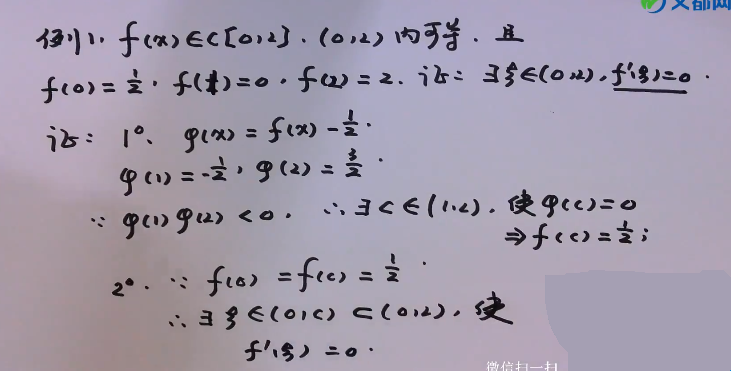 文都网
例1、f(x)∈C[0,2]．(0,2)内可导．且
f(0)=1/2．f(1)=0．f(2)=2．证：∃ξ∈(0,2)，f'(ξ)=0．
证：1°、φ(x)=f(x)-1/2．
φ(1)=-1/2，φ(2)=3/2．
∵ φ(1)φ(2)<0．∴∃c∈(1,2)，使φ(c)=0
⇒f(c)=1/2；
2°．∵ f(0)=f(c)=1/2．
∴∃ξ∈(0,c)⊂(0,2)，使
f'(ξ)=0．
微信扫一扫